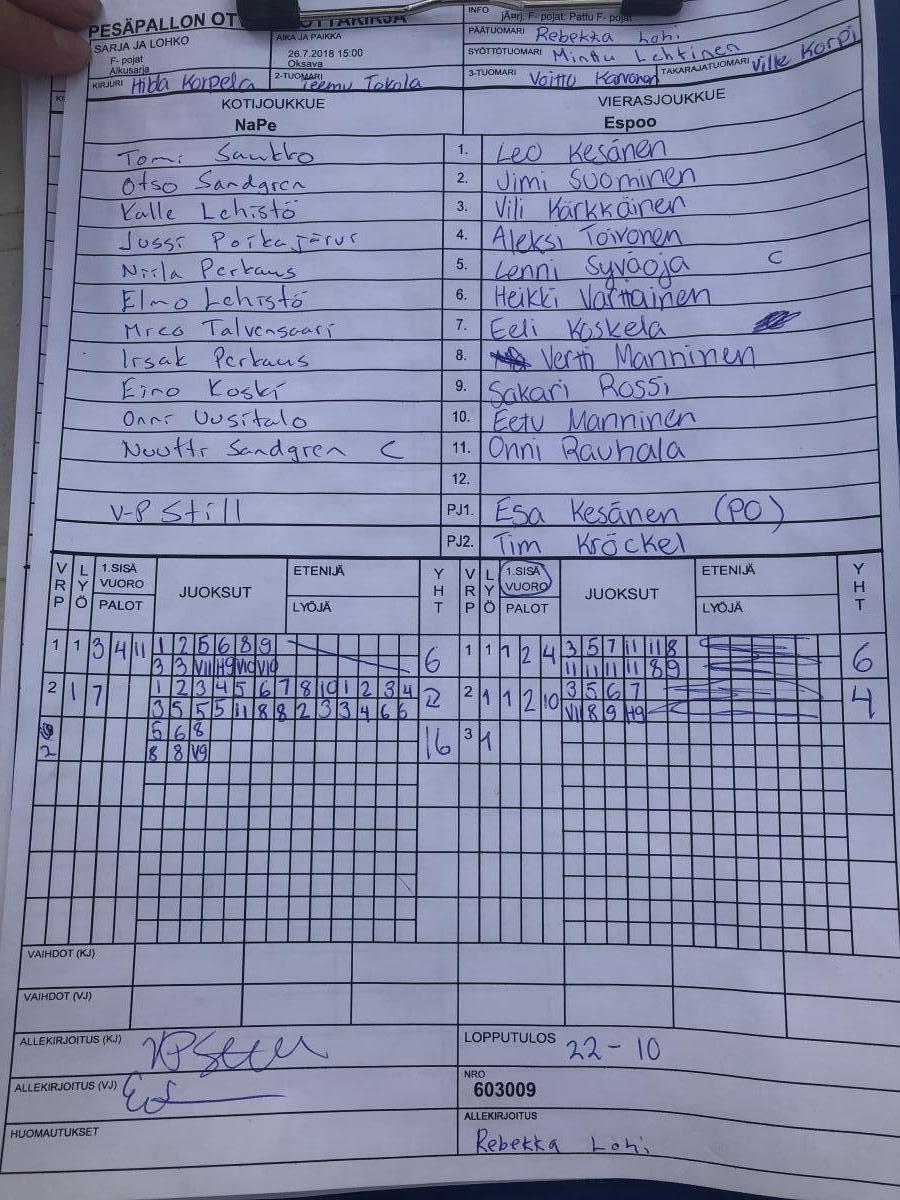 PESÄPALLON OT
SARJA JA LOHKO
F- pojat
Alkusarja
AIKA JA PAIKKA
26.7.2018 15:00
Oksava
INFO
jÄrj. F- pojat: Pattu F- pojat
PÄÄTUOMARI Rebekka Lohi
SYÖTTÖTUOMARI Minttu Lehtinen
KIRJURI Hilda Korpela 2-TUOMARI Teemu Tokola 3-TUOMARI Voitto Karvonen TAKARAJATUOMARI Ville Korpi
KOTIJOUKKUE VIERASJOUKKUE
NaPe Espoo
Tomi Saukko 1. Leo Kesänen
Otso Sandgren 2. Jimi Suominen
Kalle Lehistö 3. Vili Kärkkäinen
Jussi Poikajärvi 4. Aleksi Toivonen
Niila Perkaus 5. Lenni Syväoja C
Elmo Lehistö 6. Heikki Varttiainen
Mico Talvensaari 7. Eeli Koskela
Iisak Perkaus 8. Vertti Manninen
Eino Koski 9. Sakari Rossi
Onni Uusitalo 10. Eetu Manninen
Nuutti Sandgren C 11. Onni Rauhala
12.
V-P Still PJ1. Esa Kesänen (PO)
PJ2. Tim Kröckel
VRP LYÖ 1.SISÄ VUORO PALOT JUOKSUT ETENIJÄ LYÖJÄ YHT VRP LYÖ 1.SISÄ VUORO PALOT JUOKSUT ETENIJÄ LYÖJÄ YHT
1 1 3 4 11 1 2 5 6 8 9 6 1 1 1 2 4 3 5 7 11 1 8 6
3 3 V11 H9 V10 V10 11 11 11 11 8 9
2 1 7 1 2 3 4 5 6 7 8 10 1 2 3 4 2 1 1 2 10 3 5 6 7 4
3 5 5 5 11 8 8 2 3 3 4 6 6 V1 8 9 H9
2 5 6 8 16 3 1
8 8 V9
VAIHDOT (KJ)
VAIHDOT (VJ)
ALLEKIRJOITUS (KJ) VPStill LOPPUTULOS 22-10
ALLEKIRJOITUS (VJ) NRO
603009
HUOMAUTUKSET ALLEKIRJOITUS
Rebekka Lohi